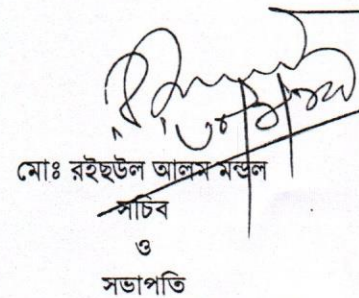 মোঃ রইছউল আলম মন্ডল
সচিব
ও
সভাপতি